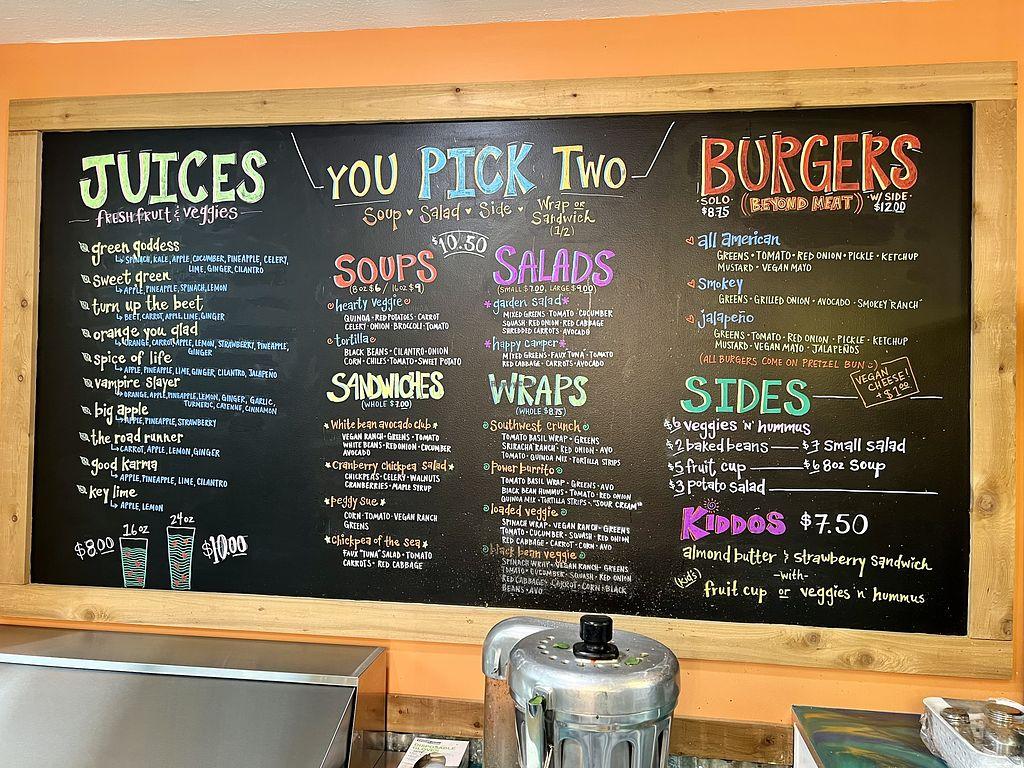 JUICES
FRESH FRUIT & VEGGIES
green goddess
SPINACH, KALE, APPLE, CUCUMBER, PINEAPPLE, CELERY,
LIME, GINGER, CILANTRO
sweet green
APPLE, PINEAPPLE, SPINACH, LEMON
turn up the beet
BEET, CARROT, APPLE, LIME, GINGER
orange you glad
ORANGE, CARROT, APPLE, LEMON, STRAWBERRY, PINEAPPLE,
GINGER
spice of life
APPLE, PINEAPPLE, LIME, GINGER, CILANTRO, JALAPEÑO
vampire slayer
ORANGE, APPLE, PINEAPPLE, LEMON, GINGER, GARLIC,
TURMERIC, CAYENNE, CINNAMON
big apple
APPLE, PINEAPPLE, STRAWBERRY
the road runner
CARROT, APPLE, LEMON, GINGER
good karma
APPLE, PINEAPPLE, LIME, CILANTRO
key lime
APPLE, LEMON
16oz
24oz
$8.00
$10.00
YOU PICK TWO
Soup • Salad • Side • Wrap or
Sandwich
(1/2)
$10.50
SOUPS
(8oz $6 / 16oz $9)
hearty veggie
QUINOA • RED POTATOES • CARROT
CELERY • ONION • BROCOLI • TOMATO
tortilla
BLACK BEANS • CILANTRO • ONION
CORN • CHILES • TOMATO • SWEET POTATO
SANDWICHES
(WHOLE $7.00)
White bean avocado club
VEGAN RANCH • GREENS • TOMATO
WHITE BEANS • RED ONION • CUCUMBER
AVOCADO
Cranberry chickpea salad
CHICKPEAS • CELERY • WALNUTS
CRANBERRIES • MAPLE SYRUP
peggy sue
CORN • TOMATO • VEGAN RANCH
GREENS
Chickpea of the Sea
FAUX "TUNA" SALAD • TOMATO
CARROTS • RED CABBAGE
SALADS
(SMALL $7.00, LARGE $9.00)
garden salad
MIXED GREENS • TOMATO • CUCUMBER
SQUASH • RED ONION • RED CABBAGE
SHREDDED CARROTS • AVOCADO
happy camper
MIXED GREENS • FAUX TUNA • TOMATO
RED CABBAGE • CARROTS • AVOCADO
WRAPS
(WHOLE $8.75)
Southwest crunch
TOMATO BASIL WRAP • GREENS
SRIRACHA RANCH • RED ONION • AVO
TOMATO • QUINOA MIX • TORTILLA STRIPS
power burrito
TOMATO BASIL WRAP • GREENS • AVO
BLACK BEAN HUMMUS • TOMATO • RED ONION
QUINOA MIX • TORTILLA STRIPS • "SOUR CREAM"
loaded veggie
SPINACH WRAP • VEGAN RANCH • GREENS
TOMATO • CUCUMBER • SQUASH • RED ONION
RED CABBAGE • CARROT • CORN • AVO
black bean veggie
SPINACH WRAP • VEGAN RANCH • GREENS
TOMATO • CUCUMBER • SQUASH • RED ONION
RED CABBAGE • CARROT • CORN • BLACK
BEANS • AVO
BURGERS
SOLO
$8.75
(BEYOND MEAT)
W/ SIDE
$12.00
all american
GREENS • TOMATO • RED ONION • PICKLE • KETCHUP
MUSTARD • VEGAN MAYO
Smokey
GREENS • GRILLED ONION • AVOCADO • SMOKEY "RANCH"
jalapeño
GREENS • TOMATO • RED ONION • PICKLE • KETCHUP
MUSTARD • VEGAN MAYO • JALAPEÑOS
(ALL BURGERS COME ON PRETZEL BUN :))
VEGAN
CHEESE!
+ $1.00
SIDES
$6 veggies 'n' hummus
$2 baked beans — $7 Small salad
$5 fruit cup — $6 8oz Soup
$3 potato salad
KIDDOS $7.50
almond butter & strawberry sandwich
-with-
(kids) fruit cup or veggies 'n' hummus